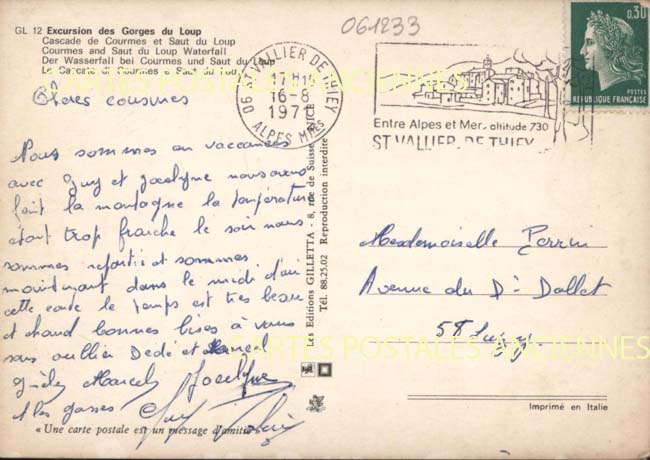 GL 12 Excursion des Gorges du Loup
Cascade de Courmes et Saut du Loup
Courmes and Saut du Loup Waterfall
Der Wasserfall bei Courmes und Saut du Loup
La Cascata di Courmes e Saut du Loup
061233
06 ST VALLIER DE THIEY
17H
16-8
1971
ALPES MMES
Entre Alpes et Mer. altitude 730
ST VALLIER-DE-THIEY
0,30
POSTES
REPUBLIQUE FRANÇAISE
CARTES POSTALES ANCIENNES
Chères cousines
Nous sommes en vacances
avec Guy et Jocelyne nous avons
fait la montagne la température
étant trop fraiche le soir nous
sommes repartis et sommes
maintenant dans le midi d'où
cette carte le temps est très beau
et chaud bonnes bises à vous
sans oublier Dédé et
Marcel Jocelyne
Guy
« Une carte postale est un message d'amitié »
Les Editions GILLETTA - 8, rue de Suisse - NICE
Tél. 88.25.02 Reproduction interdite
Mesdemoiselle Perrin
Avenue du Dr Dollet
58
CARTES POSTALES ANCIENNES
Imprimé en Italie